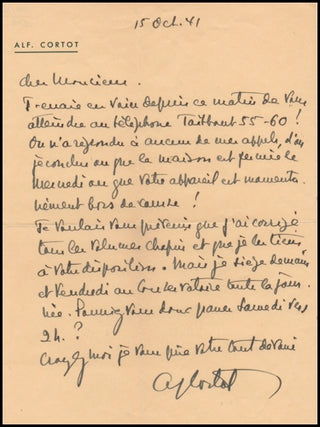 15 Oct. 41
ALF. CORTOT
Cher Monsieur.
J'essaie en vain depuis ce matin de vous
atteindre au téléphone Taitbout 55-60!
On n'a répondu à aucun de mes appels, d'où
je conclus ou que la maison est fermée le
mercredi ou que votre appareil est momenta-
nément hors de course!
Je voulais vous prévenir que j'ai corrigé
tous les volumes Chopin et que je les tiens
à votre disposition. Mais je siège demain
et Vendredi au Conservatoire toute la jour-
née. Pourriez vous donc passer Samedi vers
2h.?
Croyez moi je vous prie votre tout dévoué
Alf Cortot